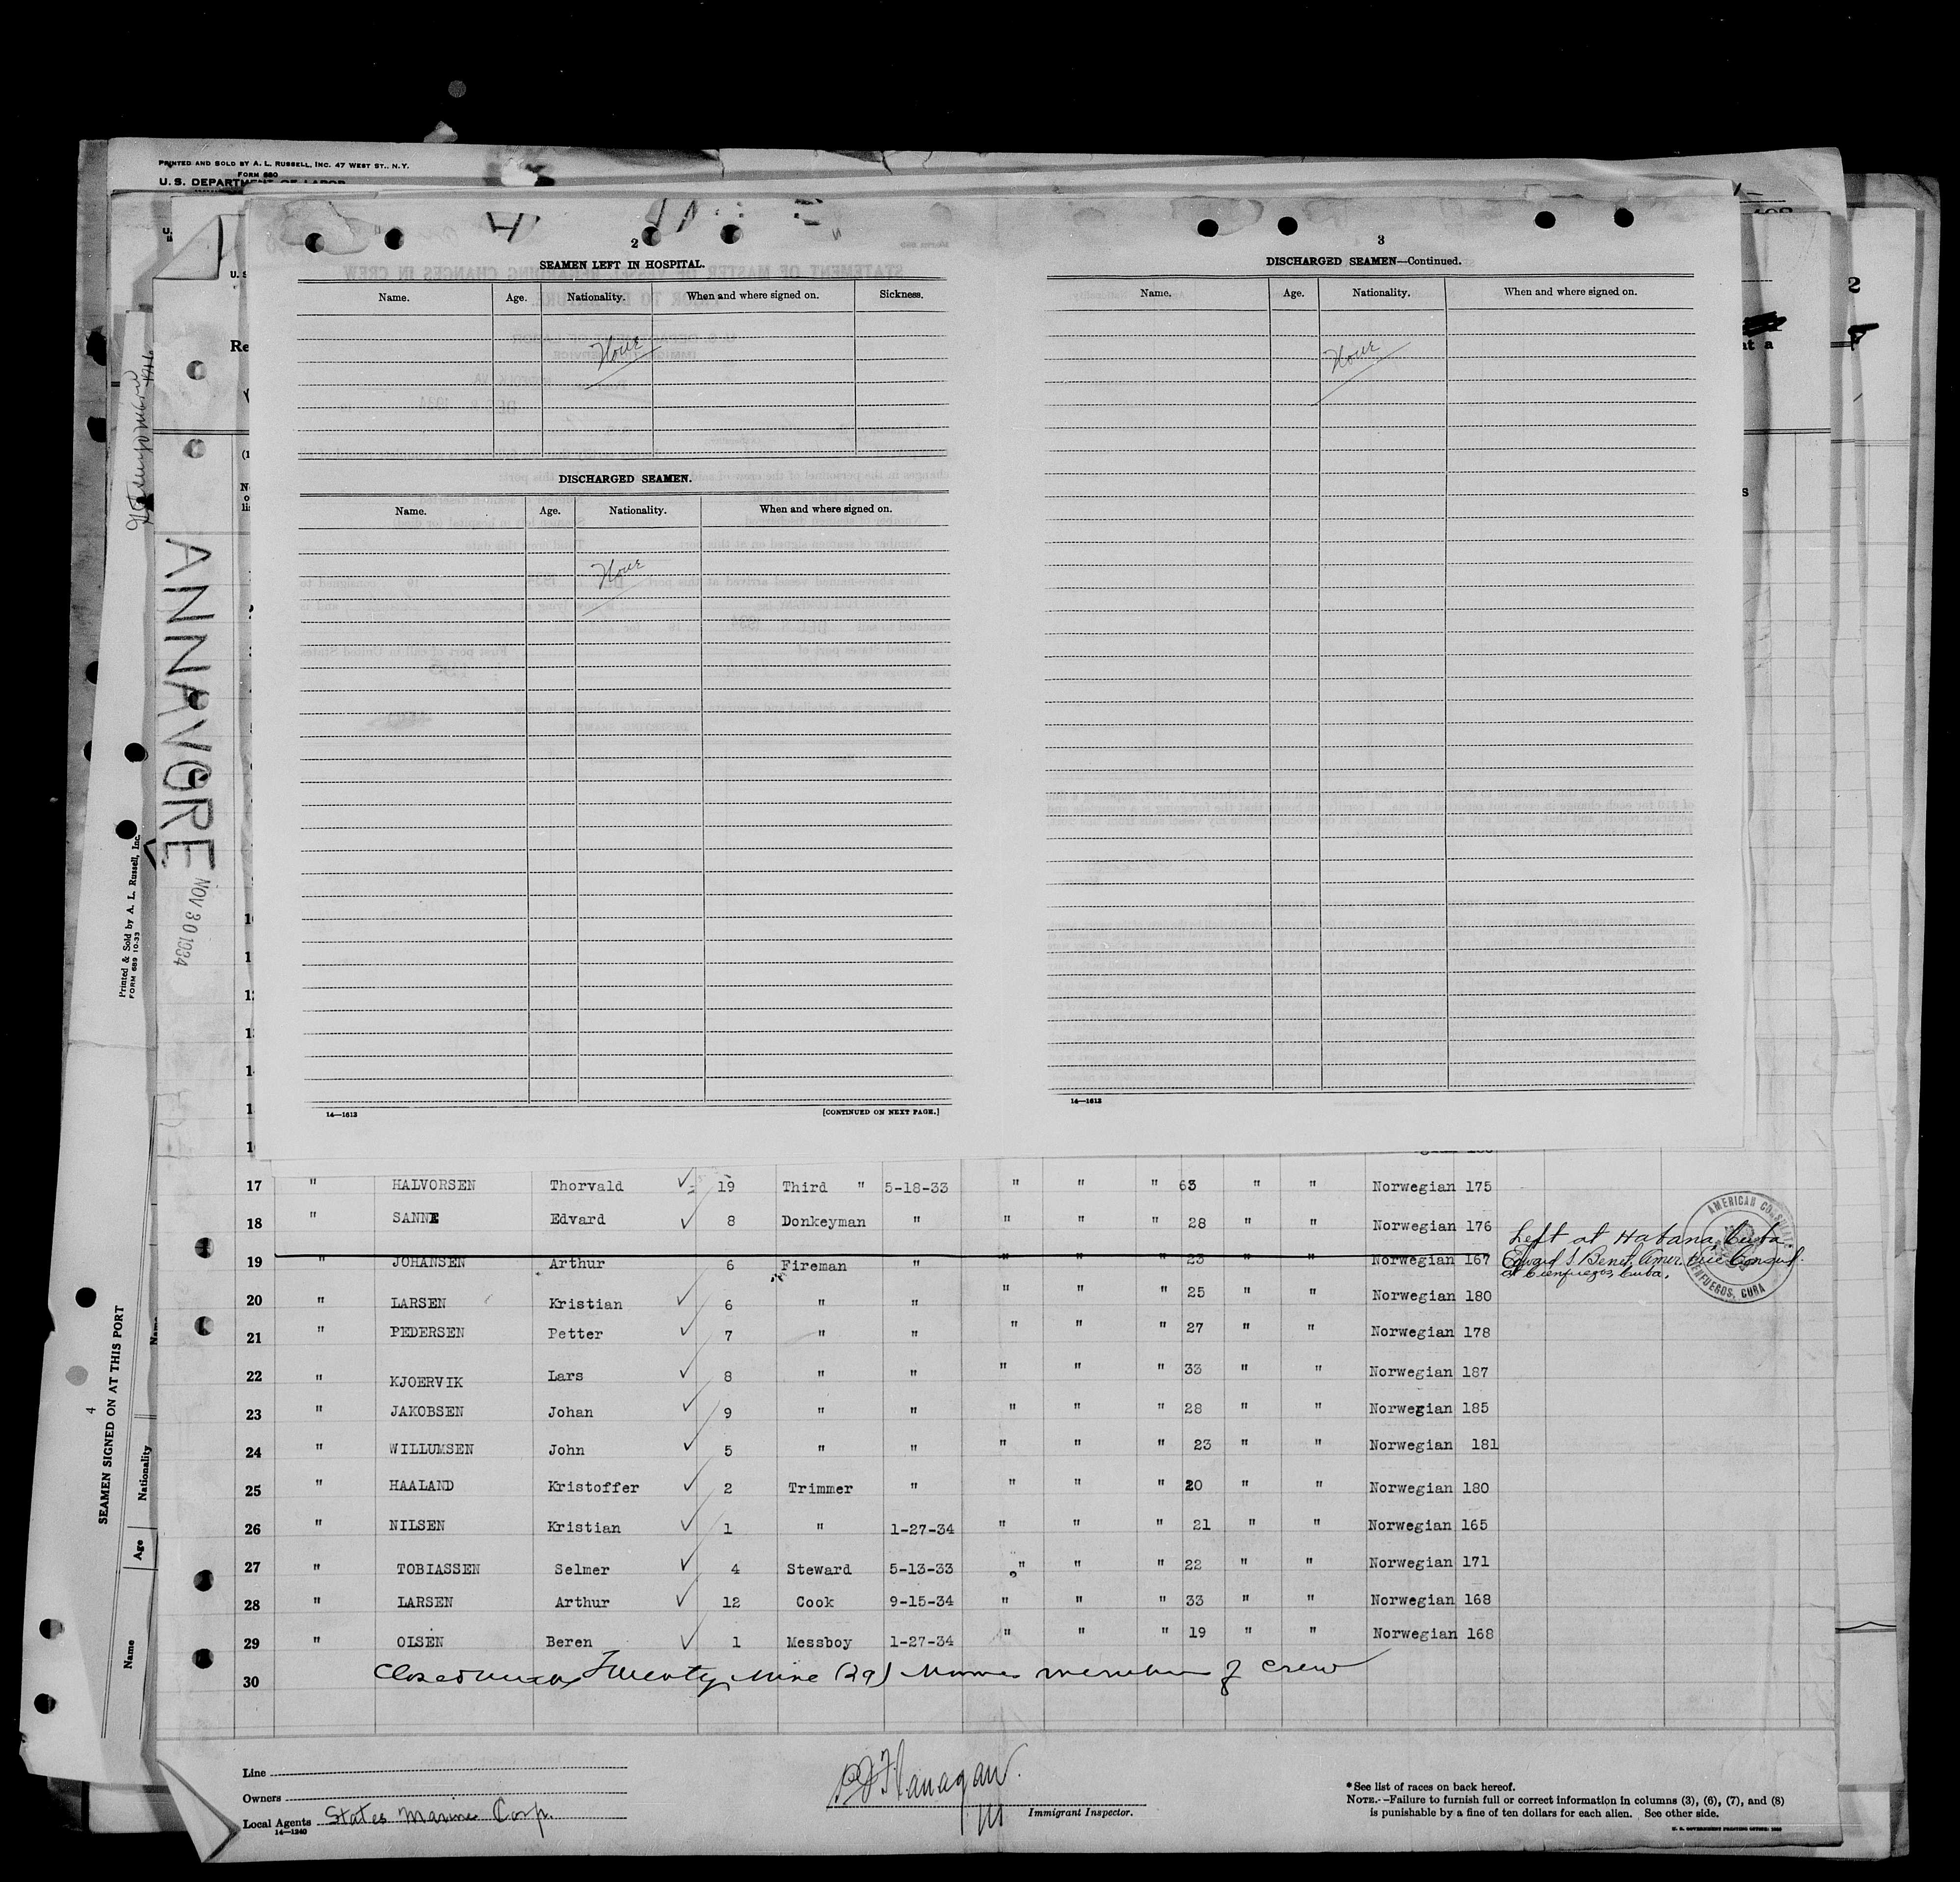 PRINTED AND SOLD BY A. L. RUSSELL, INC. 47 WEST ST., N.Y.
FORM 680
U. S. DEPARTMENT OF LABOR
2
SEAMEN LEFT IN HOSPITAL.
Name. Age. Nationality. When and where signed on. Sickness.
None
DISCHARGED SEAMEN.
Name. Age. Nationality. When and where signed on.
None
14—1613
[CONTINUED ON NEXT PAGE.]
3
DISCHARGED SEAMEN—Continued.
Name. Age. Nationality. When and where signed on.
None
14—1613
2
ANNAVORE
NOV 30 1934
Printed & Sold by A. L. Russell, Inc.
FORM 689 10-33
4
SEAMEN SIGNED ON AT THIS PORT
Name Age Nationality
17 " HALVORSEN Thorvald 19 Third " 5-18-33 " " " 63 " " Norwegian 175
18 " SANNE Edvard 8 Donkeyman " " " " 28 " " Norwegian 176
19 " JOHANSEN Arthur 6 Fireman " " " " 23 " " Norwegian 167
Left at Habana, Cuba
Edward S. Benet, Amer. Vice Consul.
at Cienfuegos, Cuba.
AMERICAN CONSULATE
CIENFUEGOS, CUBA
20 " LARSEN Kristian 6 " " " " " 25 " " Norwegian 180
21 " PEDERSEN Petter 7 " " " " " 27 " " Norwegian 178
22 " KJOERVIK Lars 8 " " " " " 33 " " Norwegian 187
23 " JAKOBSEN Johan 9 " " " " " 28 " " Norwegian 185
24 " WILLUMSEN John 5 " " " " " 23 " " Norwegian 181
25 " HAALAND Kristoffer 2 Trimmer " " " " 20 " " Norwegian 180
26 " NILSEN Kristian 1 " 1-27-34 " " " 21 " " Norwegian 165
27 " TOBIASSEN Selmer 4 Steward 5-13-33 " " " 22 " " Norwegian 171
28 " LARSEN Arthur 12 Cook 9-15-34 " " " 33 " " Norwegian 168
29 " OLSEN Beren 1 Messboy 1-27-34 " " " 19 " " Norwegian 168
30 Closed with Twenty Nine (29) members of crew
Line
Owners
Local Agents States Marine Corp.
14—1240
Flanagan
Immigrant Inspector.
*See list of races on back hereof.
NOTE.—Failure to furnish full or correct information in columns (3), (6), (7), and (8)
is punishable by a fine of ten dollars for each alien. See other side.
U. S. GOVERNMENT PRINTING OFFICE